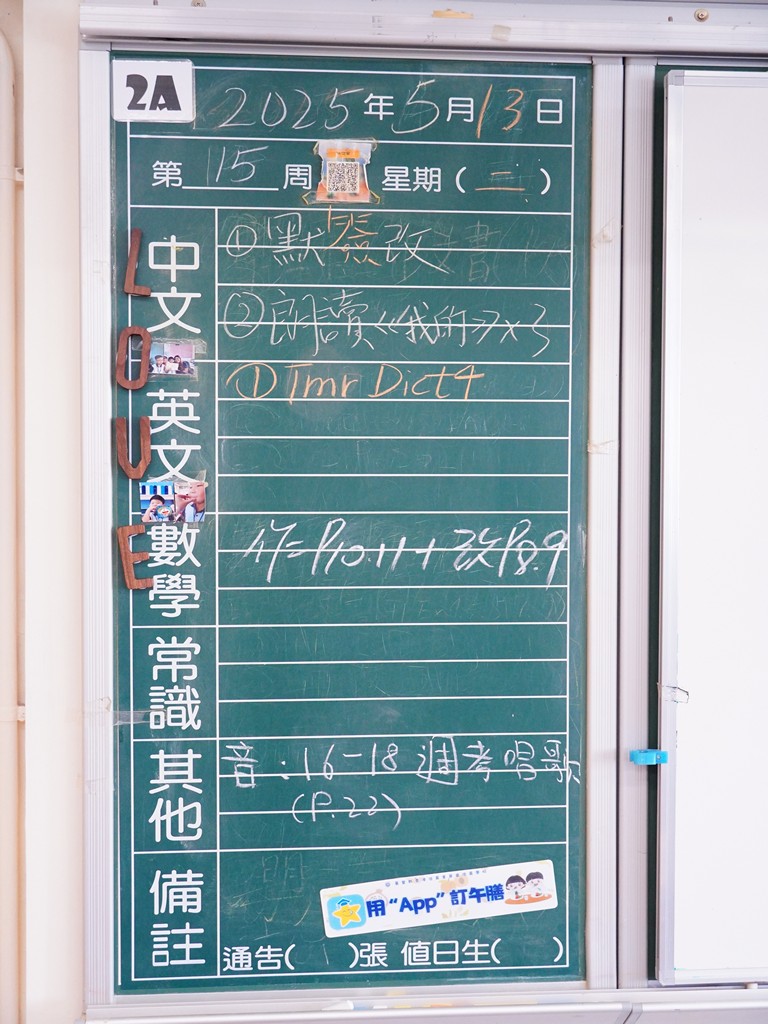 2A
2025年5月13日
第 15 周 星期(二)
中文
①默簽改
②朗讀《我的》×3
LOVE
英文
①Tmr Dict4
數學
作=P10.11+改P8.9
常識
其他
音:16-18週考唱歌
(P.22)
備註
用“App”訂午膳
通告( )張 值日生( )